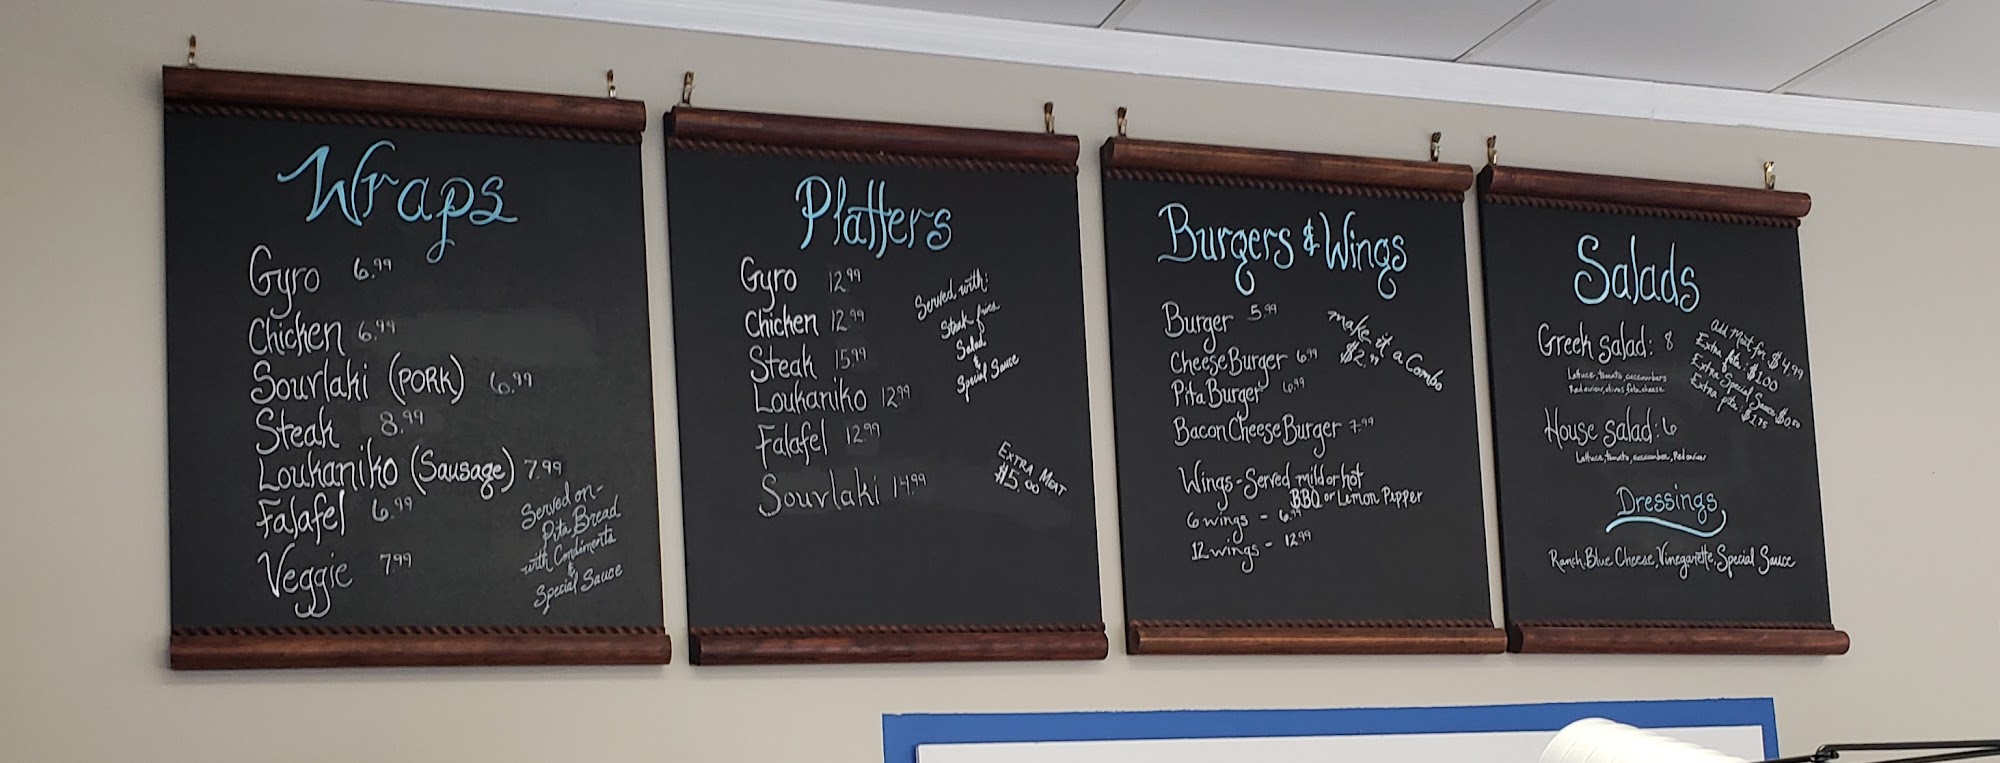 Wraps
Gyro 6.99
Chicken 6.99
Souvlaki (PORK) 6.99
Steak 8.99
Loukaniko (Sausage) 7.99
Falafel 6.99
Veggie 7.99
Served on-
Pita Bread
with Condiments
&
Special Sauce
Platters
Gyro 12.99
Chicken 12.99
Steak 15.99
Loukaniko 12.99
Falafel 12.99
Souvlaki 14.99
Served with:
Steak fries
Salad
&
Special Sauce
EXTRA MEAT
$5.00
Burgers & Wings
Burger 5.99
CheeseBurger 6.99
Pita Burger 6.99
Bacon CheeseBurger 7.99
make it a Combo
$2.99
Wings-Served mild or hot
BBQ or Lemon Papper
6 wings - 6.99
12 wings - 12.99
Salads
Greek salad: 8
Lettuce, tomato, cucumbers
Red onion, olives, feta cheese
House salad: 6
Lettuce, tomato, cucumber, Red onion
add Meat for $4.99
Extra feta: $1.00
Extra Special Sauce $0.00
Extra pita: $1.75
Dressings
Ranch, Blue Cheese, Vinegarette, Special Sauce